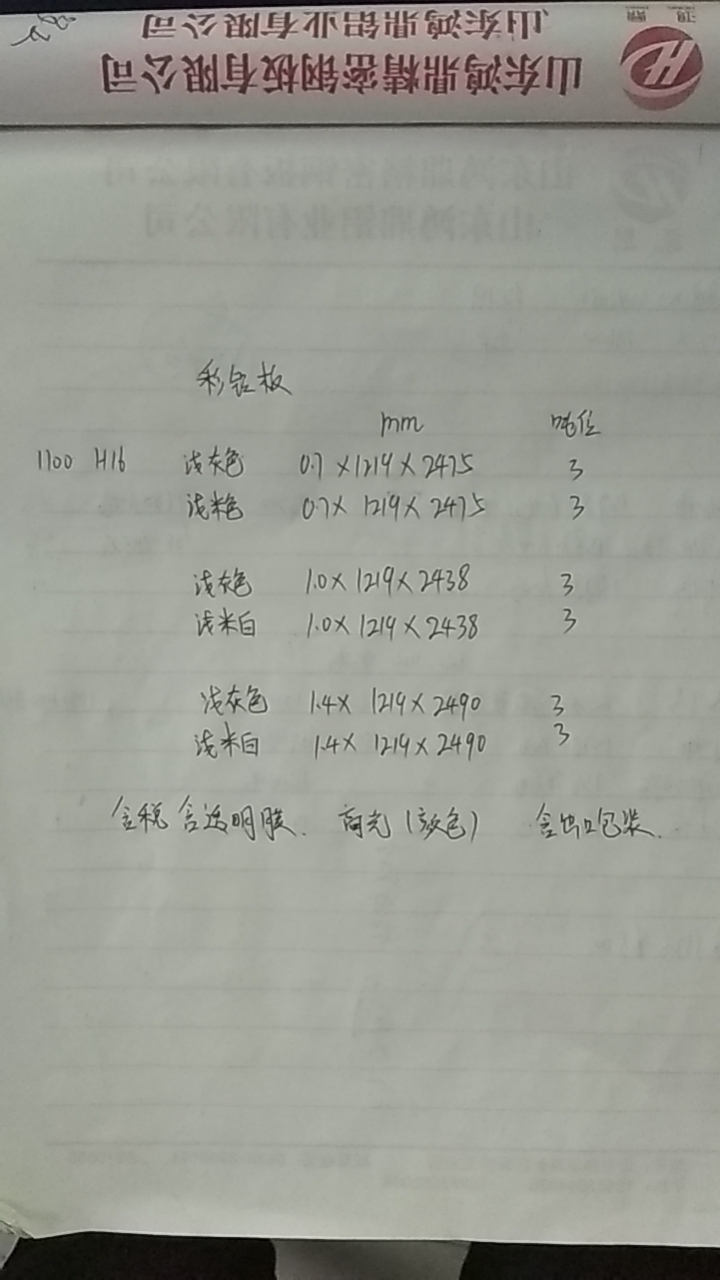 山东鸿鼎铝业有限公司
山东鸿鼎精密钢板有限公司
彩铝板
mm 吨位
1100 H16 浅灰色 0.7×1219×2475 3
浅米色 0.7× 1219×2475 3
浅灰色 1.0× 1219×2438 3
浅米白 1.0× 1219×2438 3
浅灰色 1.4× 1219×2490 3
浅米白 1.4× 1219×2490 3
含税 含透明膜. 高光(效色) 含出口包装.